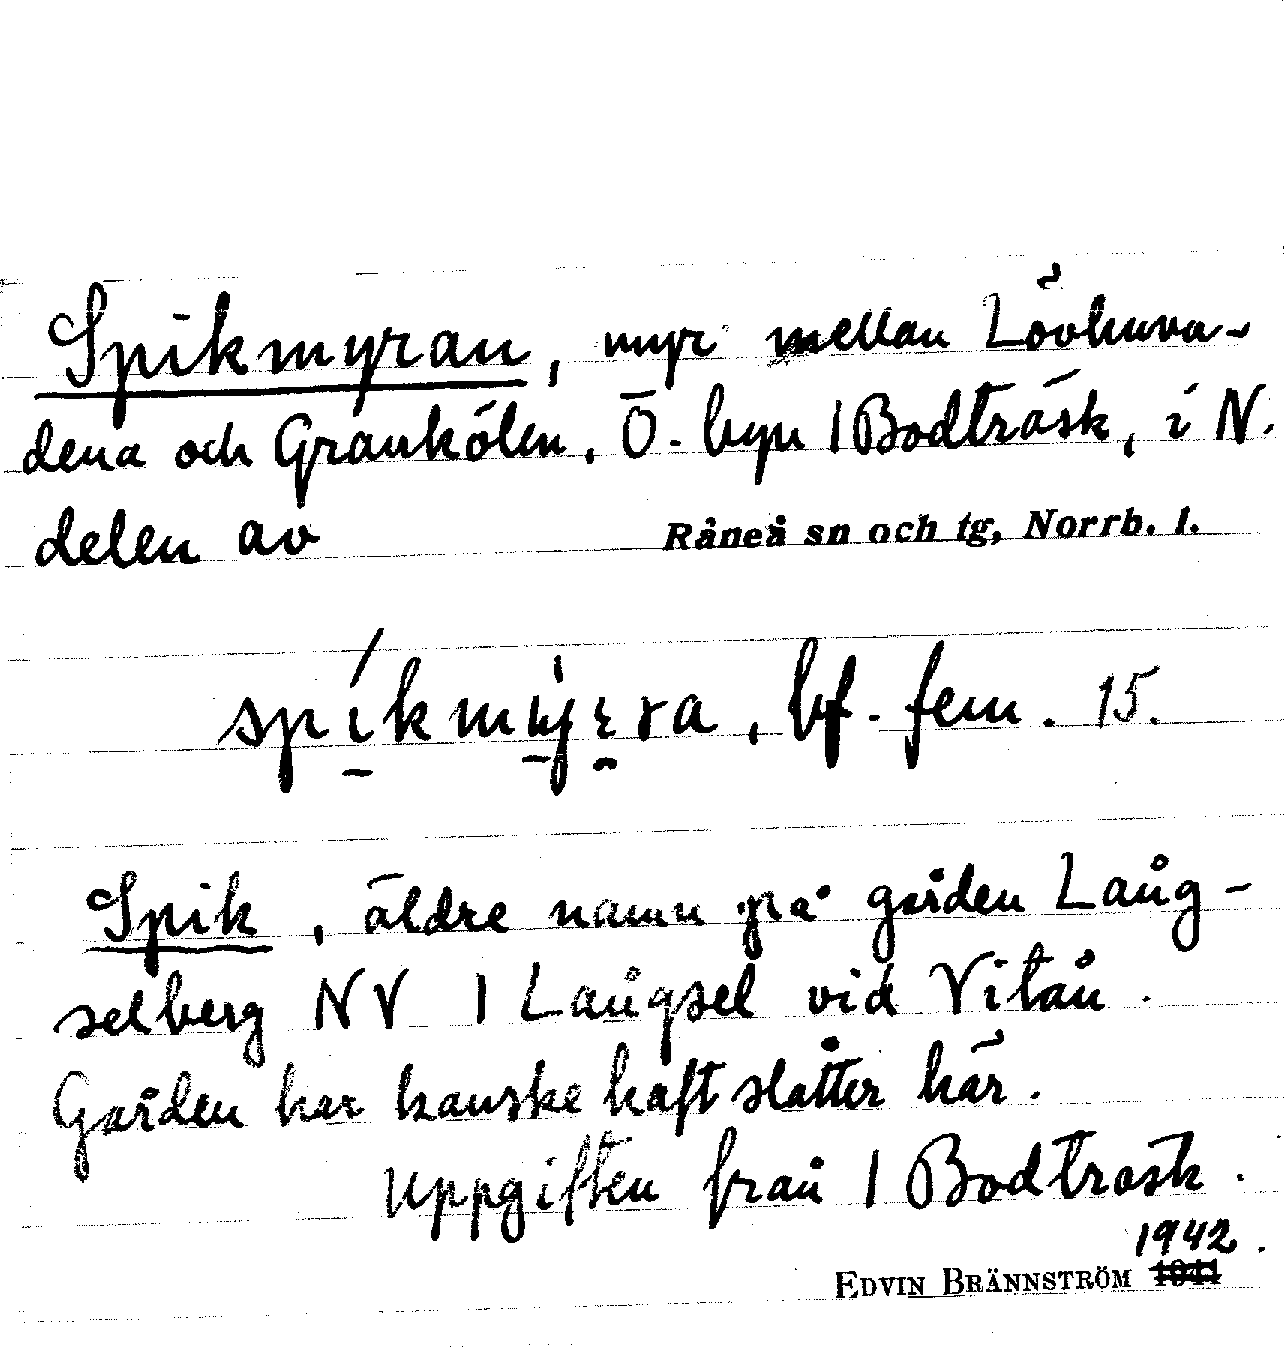 Spikmyran, myr mellan Lövhuva-
dena och Grankölen, Ö. byn 1 Bodträsk, i N.
delen av Råneå sn och tg, Norrb. l.
, bf. fem. 15.
Spik, äldre namn på gården Lång-
selberg NV 1 Långsel vid Vitån.
Gården har kanske haft slåtter här.
Uppgiften från 1 Bodträsk.
1942.
EDVIN BRÄNNSTRÖM 1941